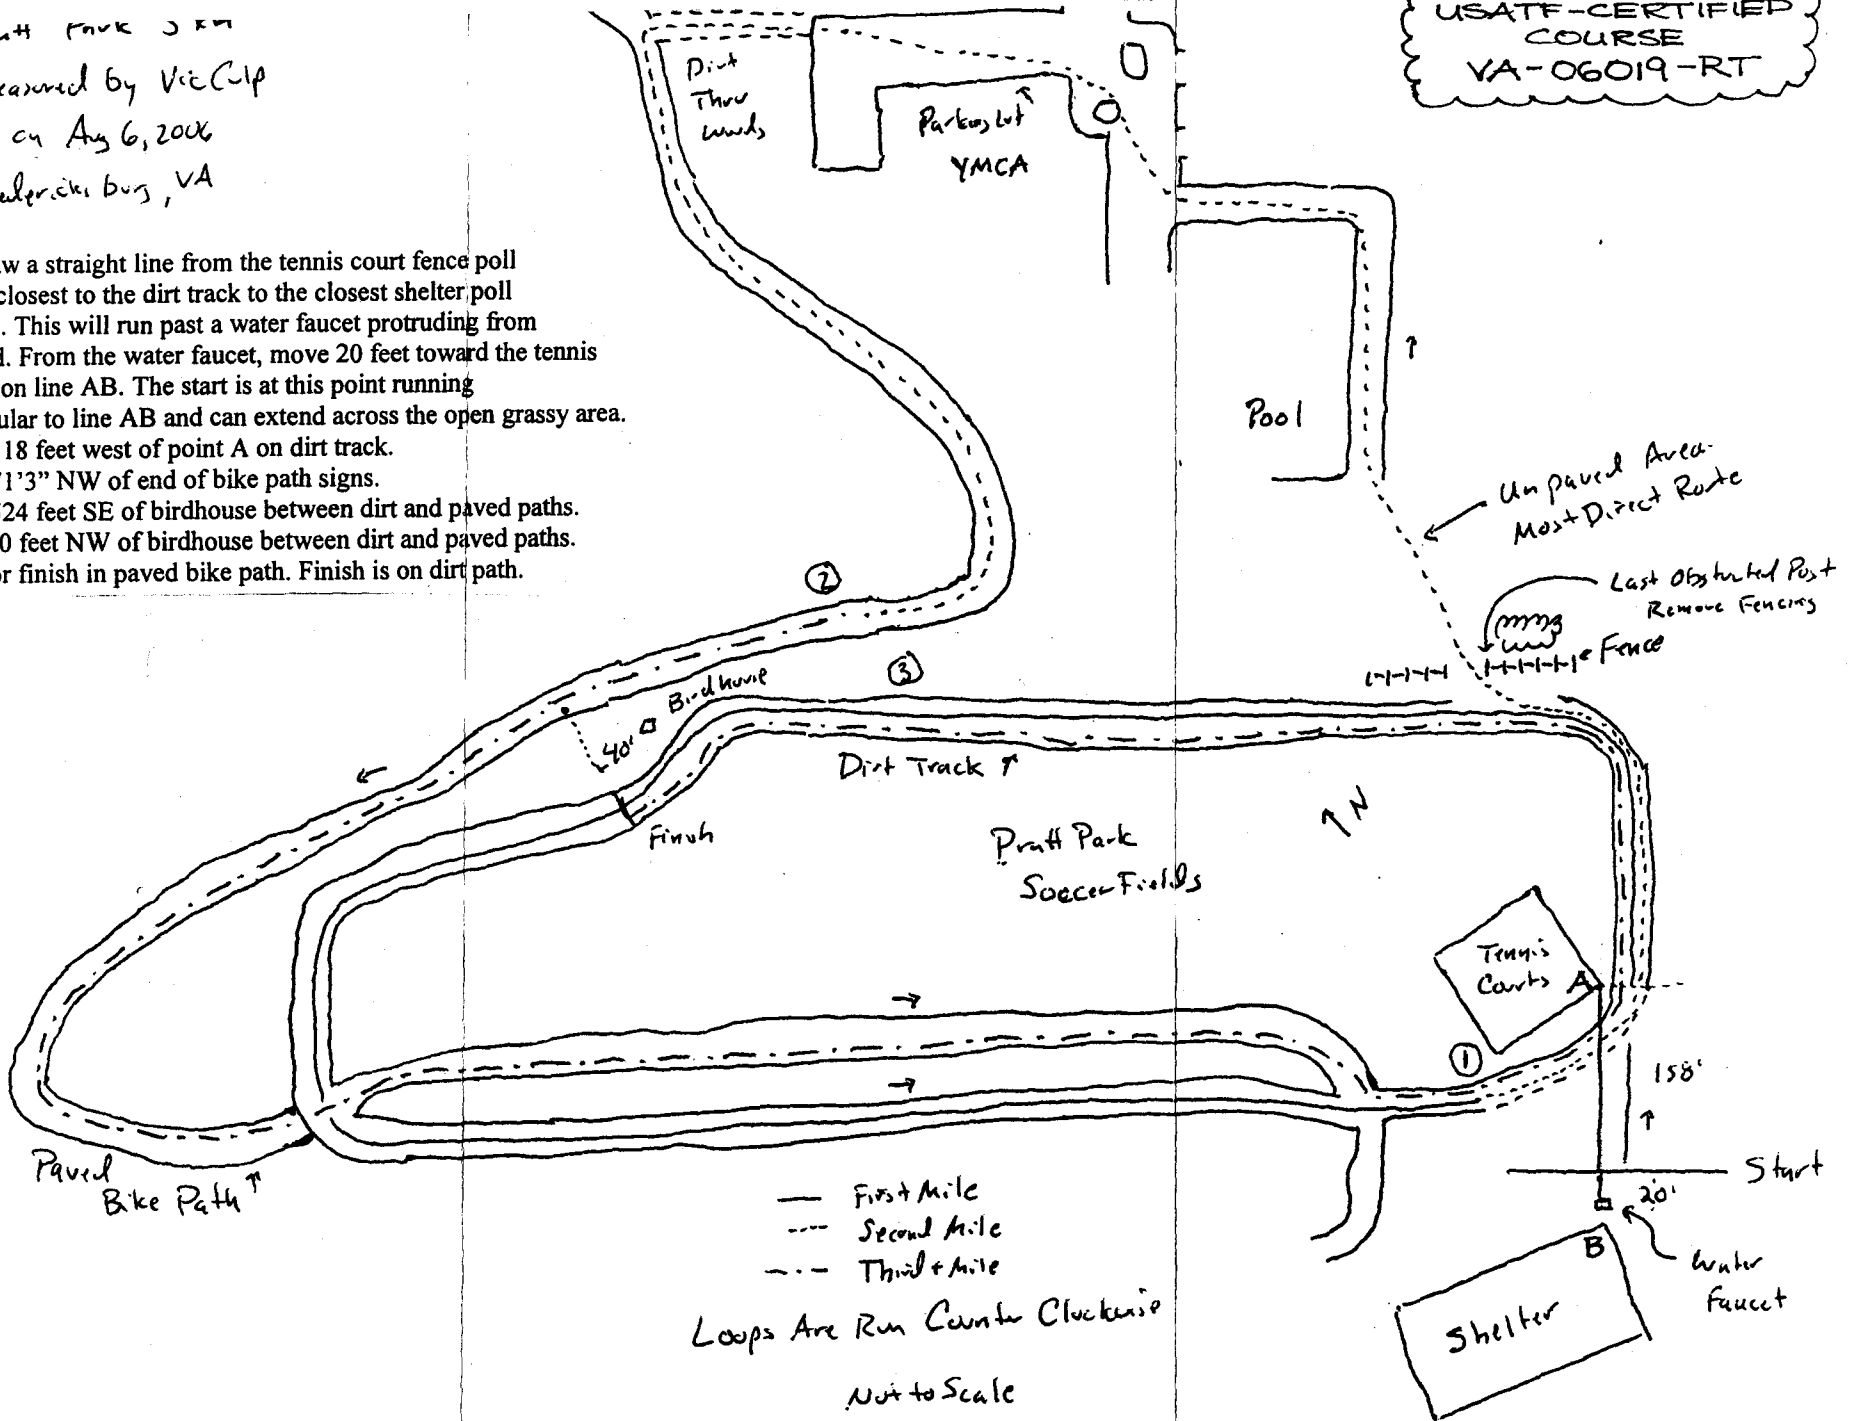 Park 5 KM
easured by Vic Culp
on Aug 6, 2006
edericksburg, VA
w a straight line from the tennis court fence poll
closest to the dirt track to the closest shelter poll
. This will run past a water faucet protruding from
l. From the water faucet, move 20 feet toward the tennis
on line AB. The start is at this point running
ular to line AB and can extend across the open grassy area.
18 feet west of point A on dirt track.
71'3" NW of end of bike path signs.
24 feet SE of birdhouse between dirt and paved paths.
0 feet NW of birdhouse between dirt and paved paths.
or finish in paved bike path. Finish is on dirt path.
USATF-CERTIFIED
COURSE
VA-06019-RT
Dirt
Thru
Woods
Parking Lot
YMCA
Pool
Unpaved Area-
Most Direct Route
Last Obstructed Post
Remove Fencing
Fence
2
3
Birdhouse
40'
Dirt Track
Finish
N
Pratt Park
Soccer Fields
Tennis
Courts
A
1
158'
Start
20'
B
Water
Faucet
Shelter
Paved
Bike Path
First Mile
Second Mile
Third + Mile
Loops Are Run Counter Clockwise
Not to Scale